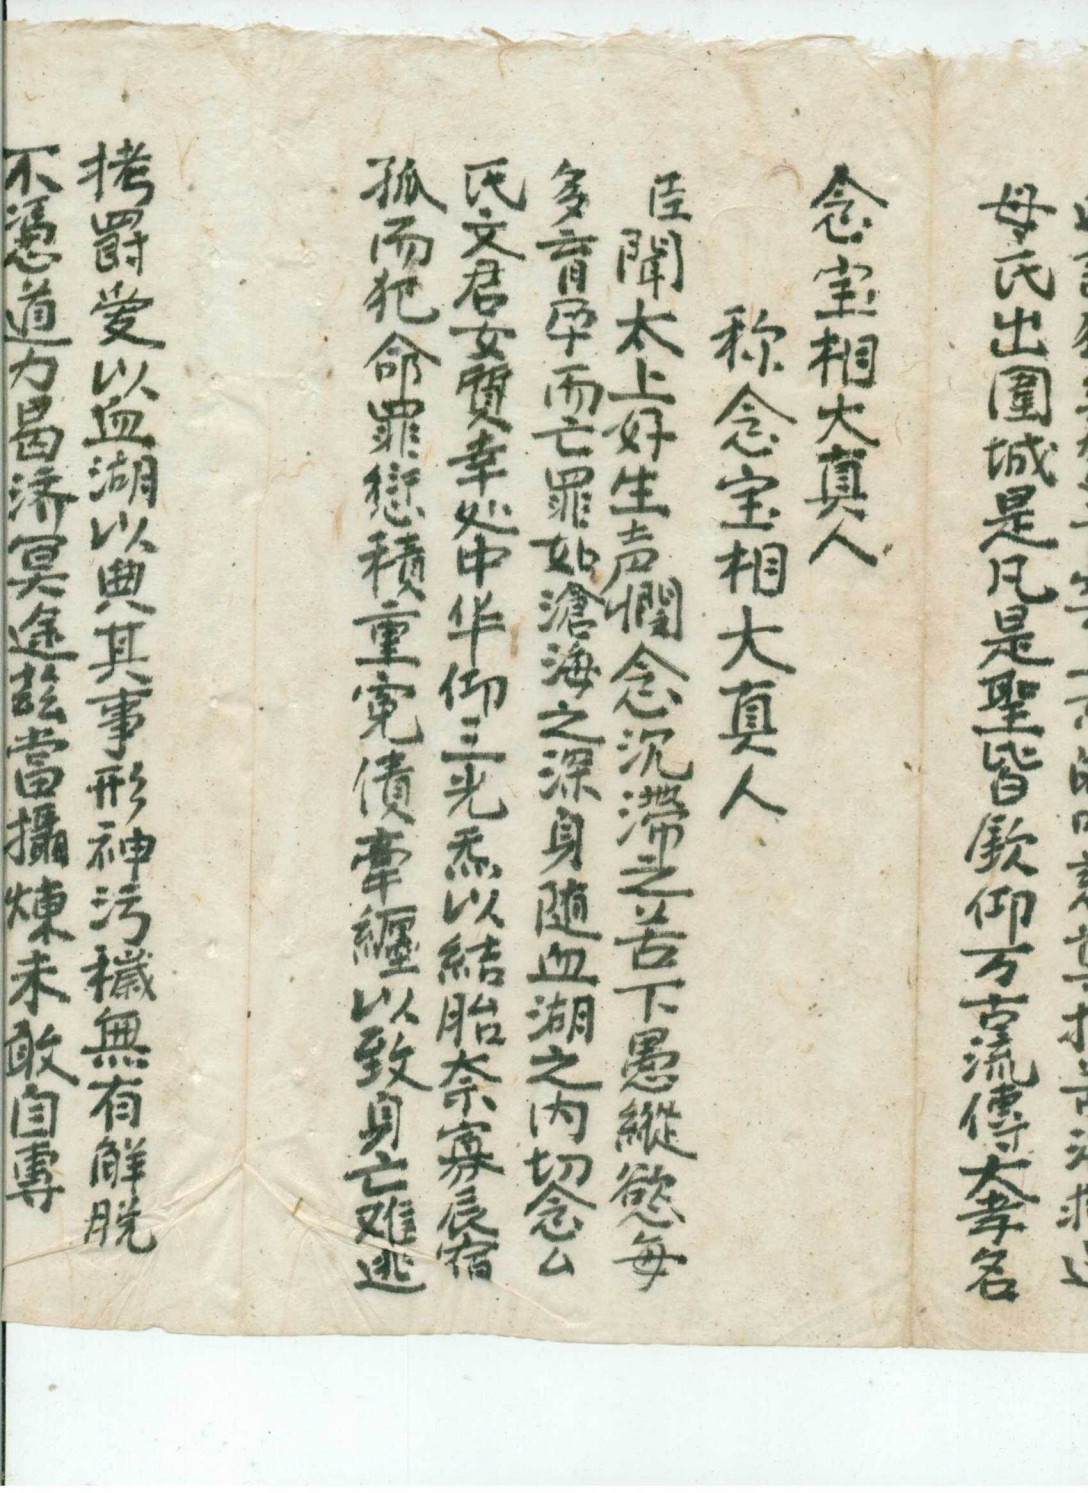 母氏出圍城是凡是聖皆欽仰万古流傳大孝名
念宝相大真人
称念宝相大真人
臣聞太上好生声憫念沉滯之苦下愚縱慾每
多育孕而亡罪如滄海之深身随血湖之内切念厶
氏文君女質幸处中华仰三光炁以結胎奈寡辰宿
孤而犯命罪愆積重寃债牽纏以致身亡难逃
拷罸爱以血湖以典其事形神污穢無有解脫
不憑道力曷済冥途玆當攝煉未敢自專